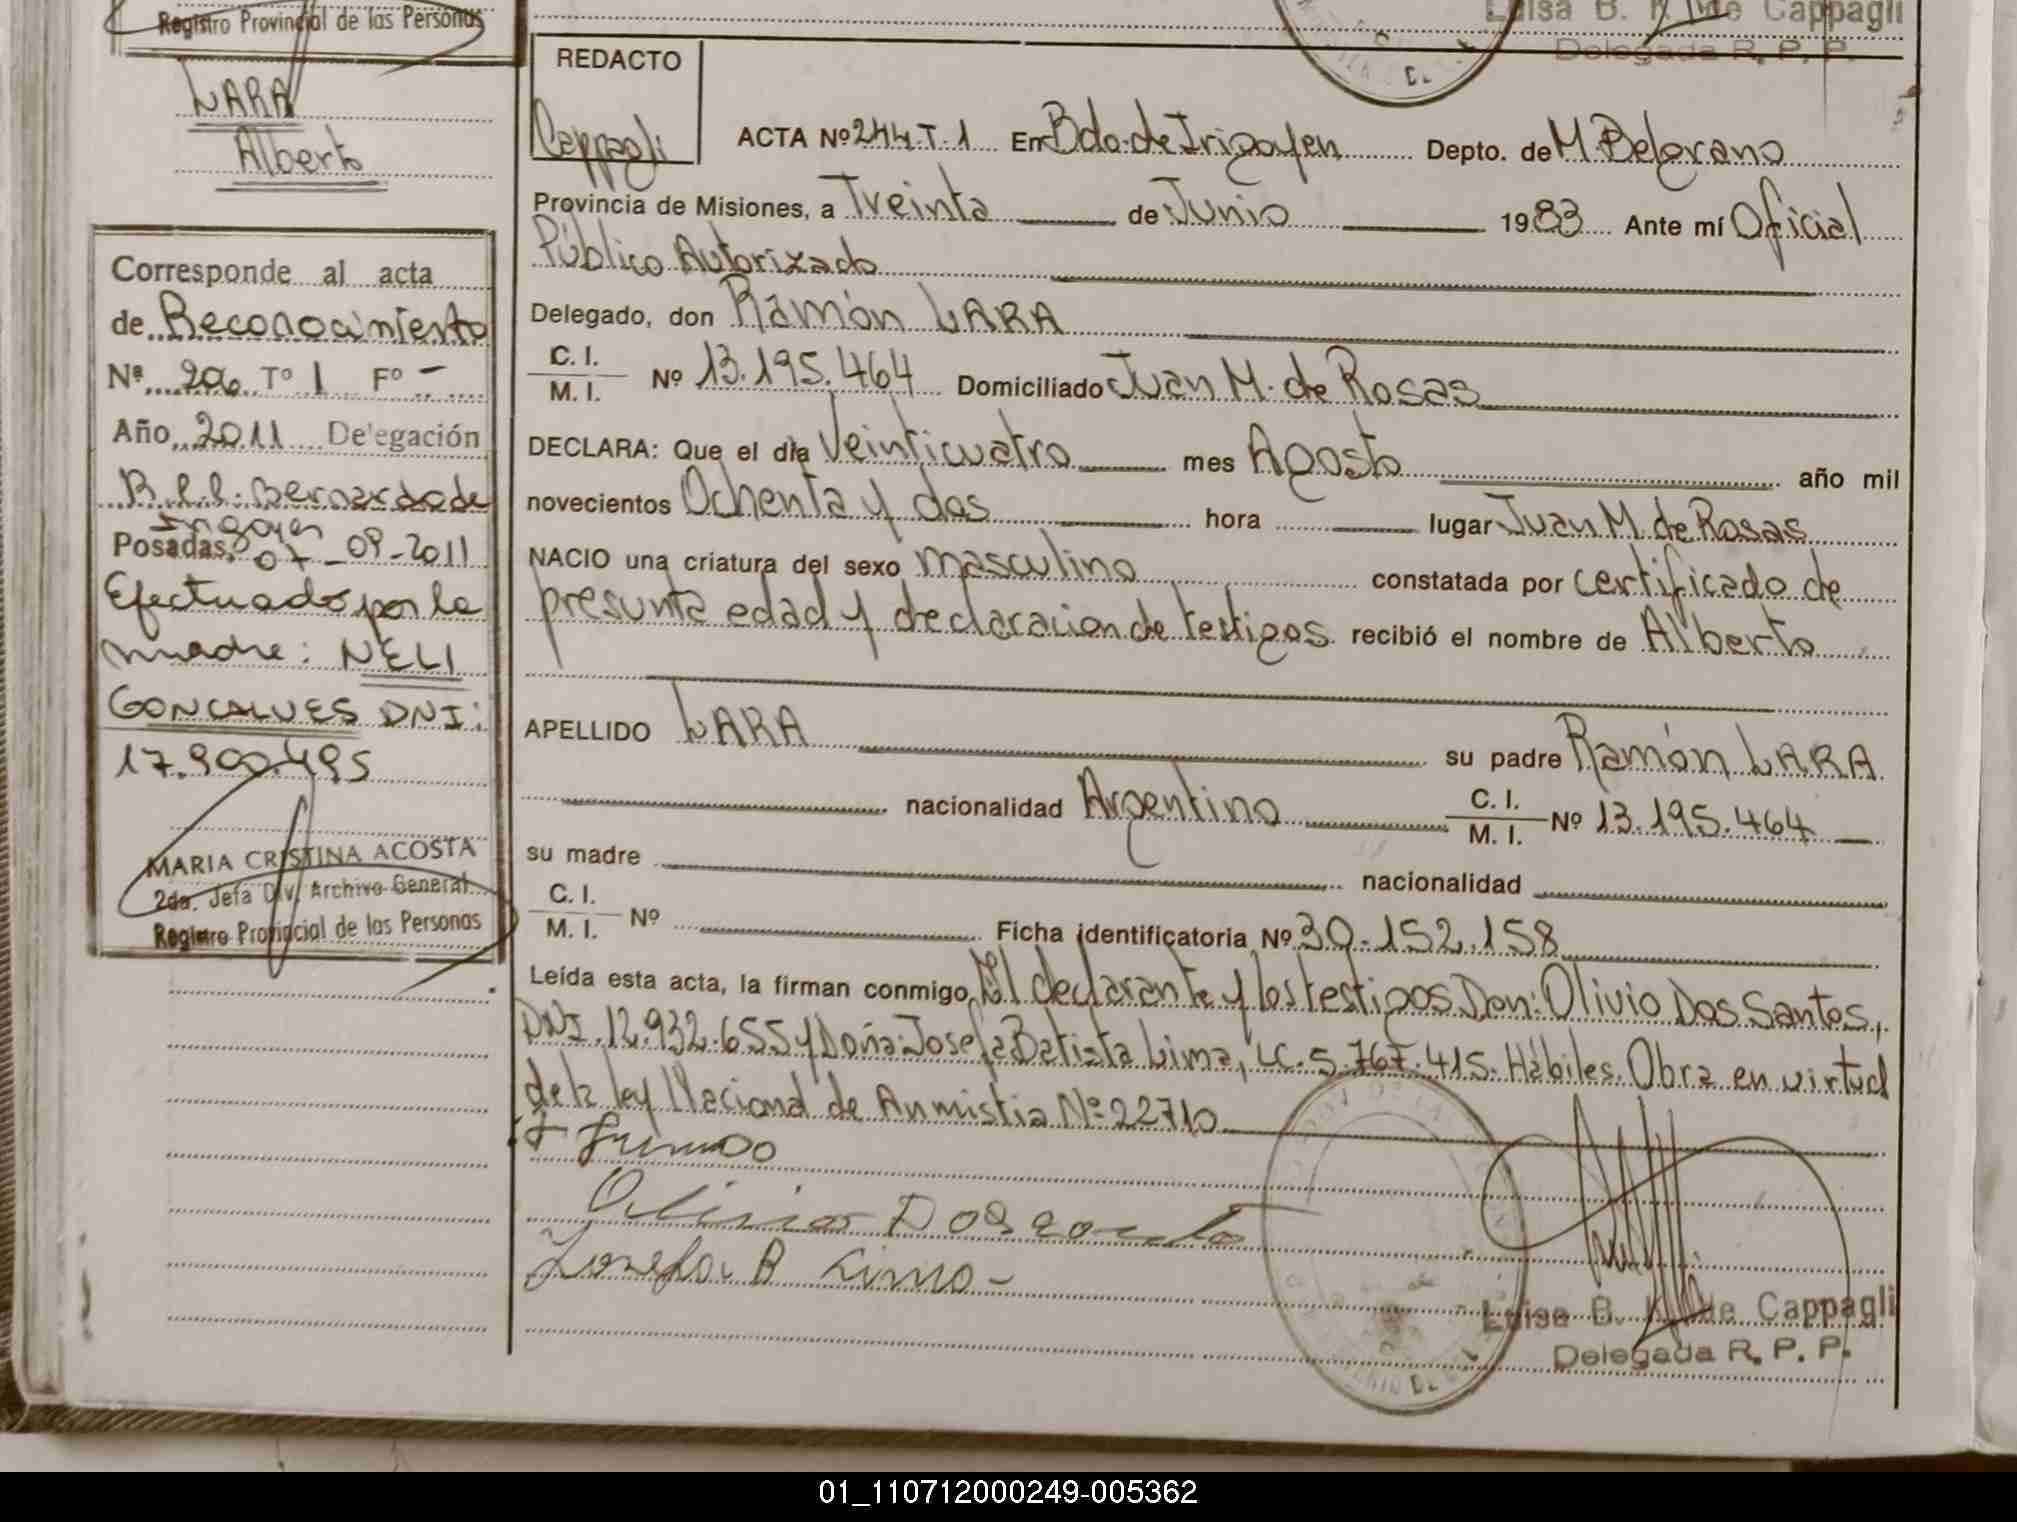 Registro Provincial de las Personas
LARA
Alberto
Corresponde al acta
de Reconocimiento
Nº 206 Tº 1 Fº -
Año 2011 Delegación
Bernardo de
Irigoyen
Posadas, 07-09-2011
Efectuado por la
madre: NELI
GONCALVES DNI:
17.900.495
MARIA CRISTINA ACOSTA
2da. Jefa Div. Archivo General
Registro Provincial de las Personas
Luisa B. K. de Cappagli
Delegada R. P. P.
REDACTO
Cappagli
ACTA Nº 244 T. 1 En Bdo. de Irigoyen Depto. de M Belgrano
Provincia de Misiones, a Treinta de Junio 1983 Ante mí Oficial
Público Autorizado
Delegado, don Ramón LARA
C. I.
M. I. Nº 13.195.464 Domiciliado Juan M. de Rosas
DECLARA: Que el día Veinticuatro mes Agosto año mil
novecientos Ochenta y dos hora lugar Juan M. de Rosas
NACIO una criatura del sexo masculino constatada por certificado de
presunta edad y declaracion de testigos recibió el nombre de Alberto
APELLIDO LARA su padre Ramón LARA
nacionalidad Argentino C. I. M. I. Nº 13.195.464
su madre nacionalidad
C. I.
M. I. Nº Ficha identificatoria Nº 30.152.158
Leída esta acta, la firman conmigo, El declarante y los testigos Don: Olivio Dos Santos,
DNI. 12.932.655 y Doña: Josefa Batista Lima, LC. 5.767.415. Hábiles. Obra en virtud
de la ley Nacional de Anmistia Nº 22710
Josefa B Lima-
Luisa B. K. de Cappagli
Delegada R. P. P.
01_110712000249-005362